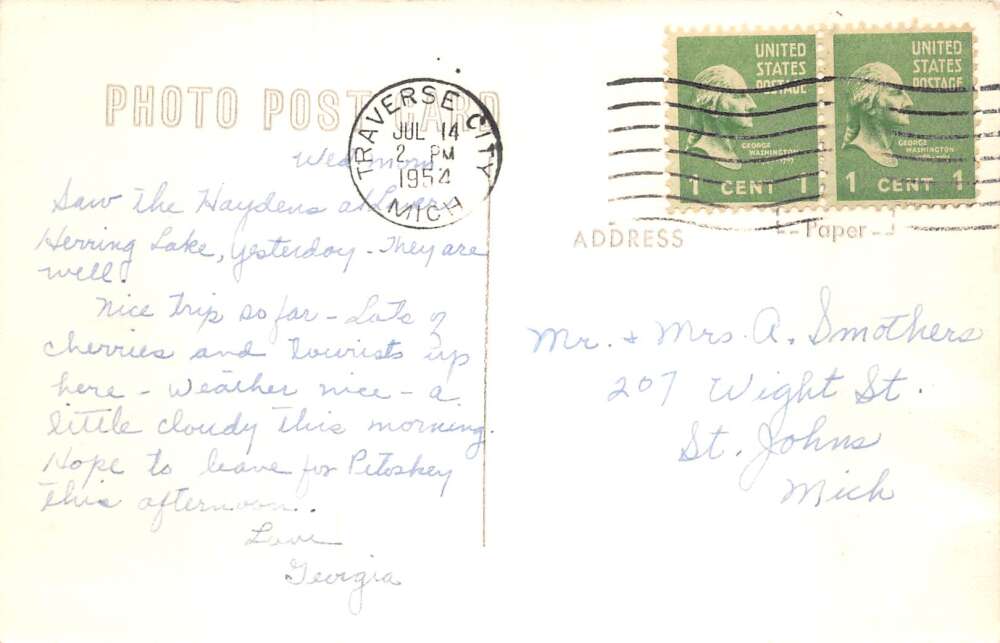 PHOTO POST CARD
TRAVERSE CITY
JUL 14
2 PM
1954
MICH
UNITED
STATES
POSTAGE
GEORGE
WASHINGTON
1 CENT 1
UNITED
STATES
POSTAGE
GEORGE
WASHINGTON
1 CENT 1
Wed. morn.
Saw the Haydens at Lower
Herring Lake, yesterday - They are
well.
Nice trip so far - Lots of
cherries and tourists up
here - weather nice - a
little cloudy this morning.
Hope to leave for Petoskey
this afternoon..
Love
Georgia
ADDRESS
Paper
Mr. + Mrs. A. Smothers
207 Wight St.
St. Johns
Mich